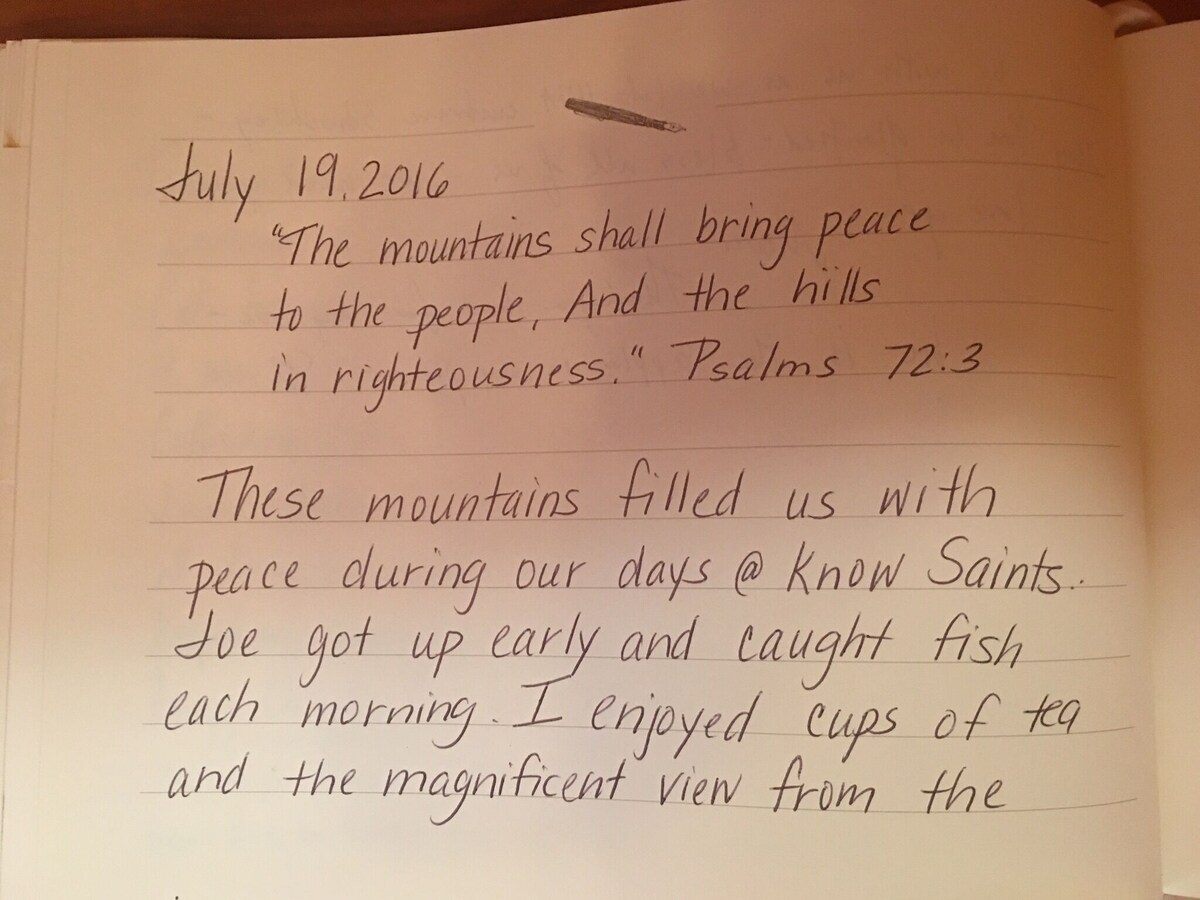 July 19, 2016
"The mountains shall bring peace
to the people, And the hills
in righteousness." Psalms 72:3
These mountains filled us with
peace during our days @ Know Saints.
Joe got up early and caught fish
each morning. I enjoyed cups of tea
and the magnificent view from the